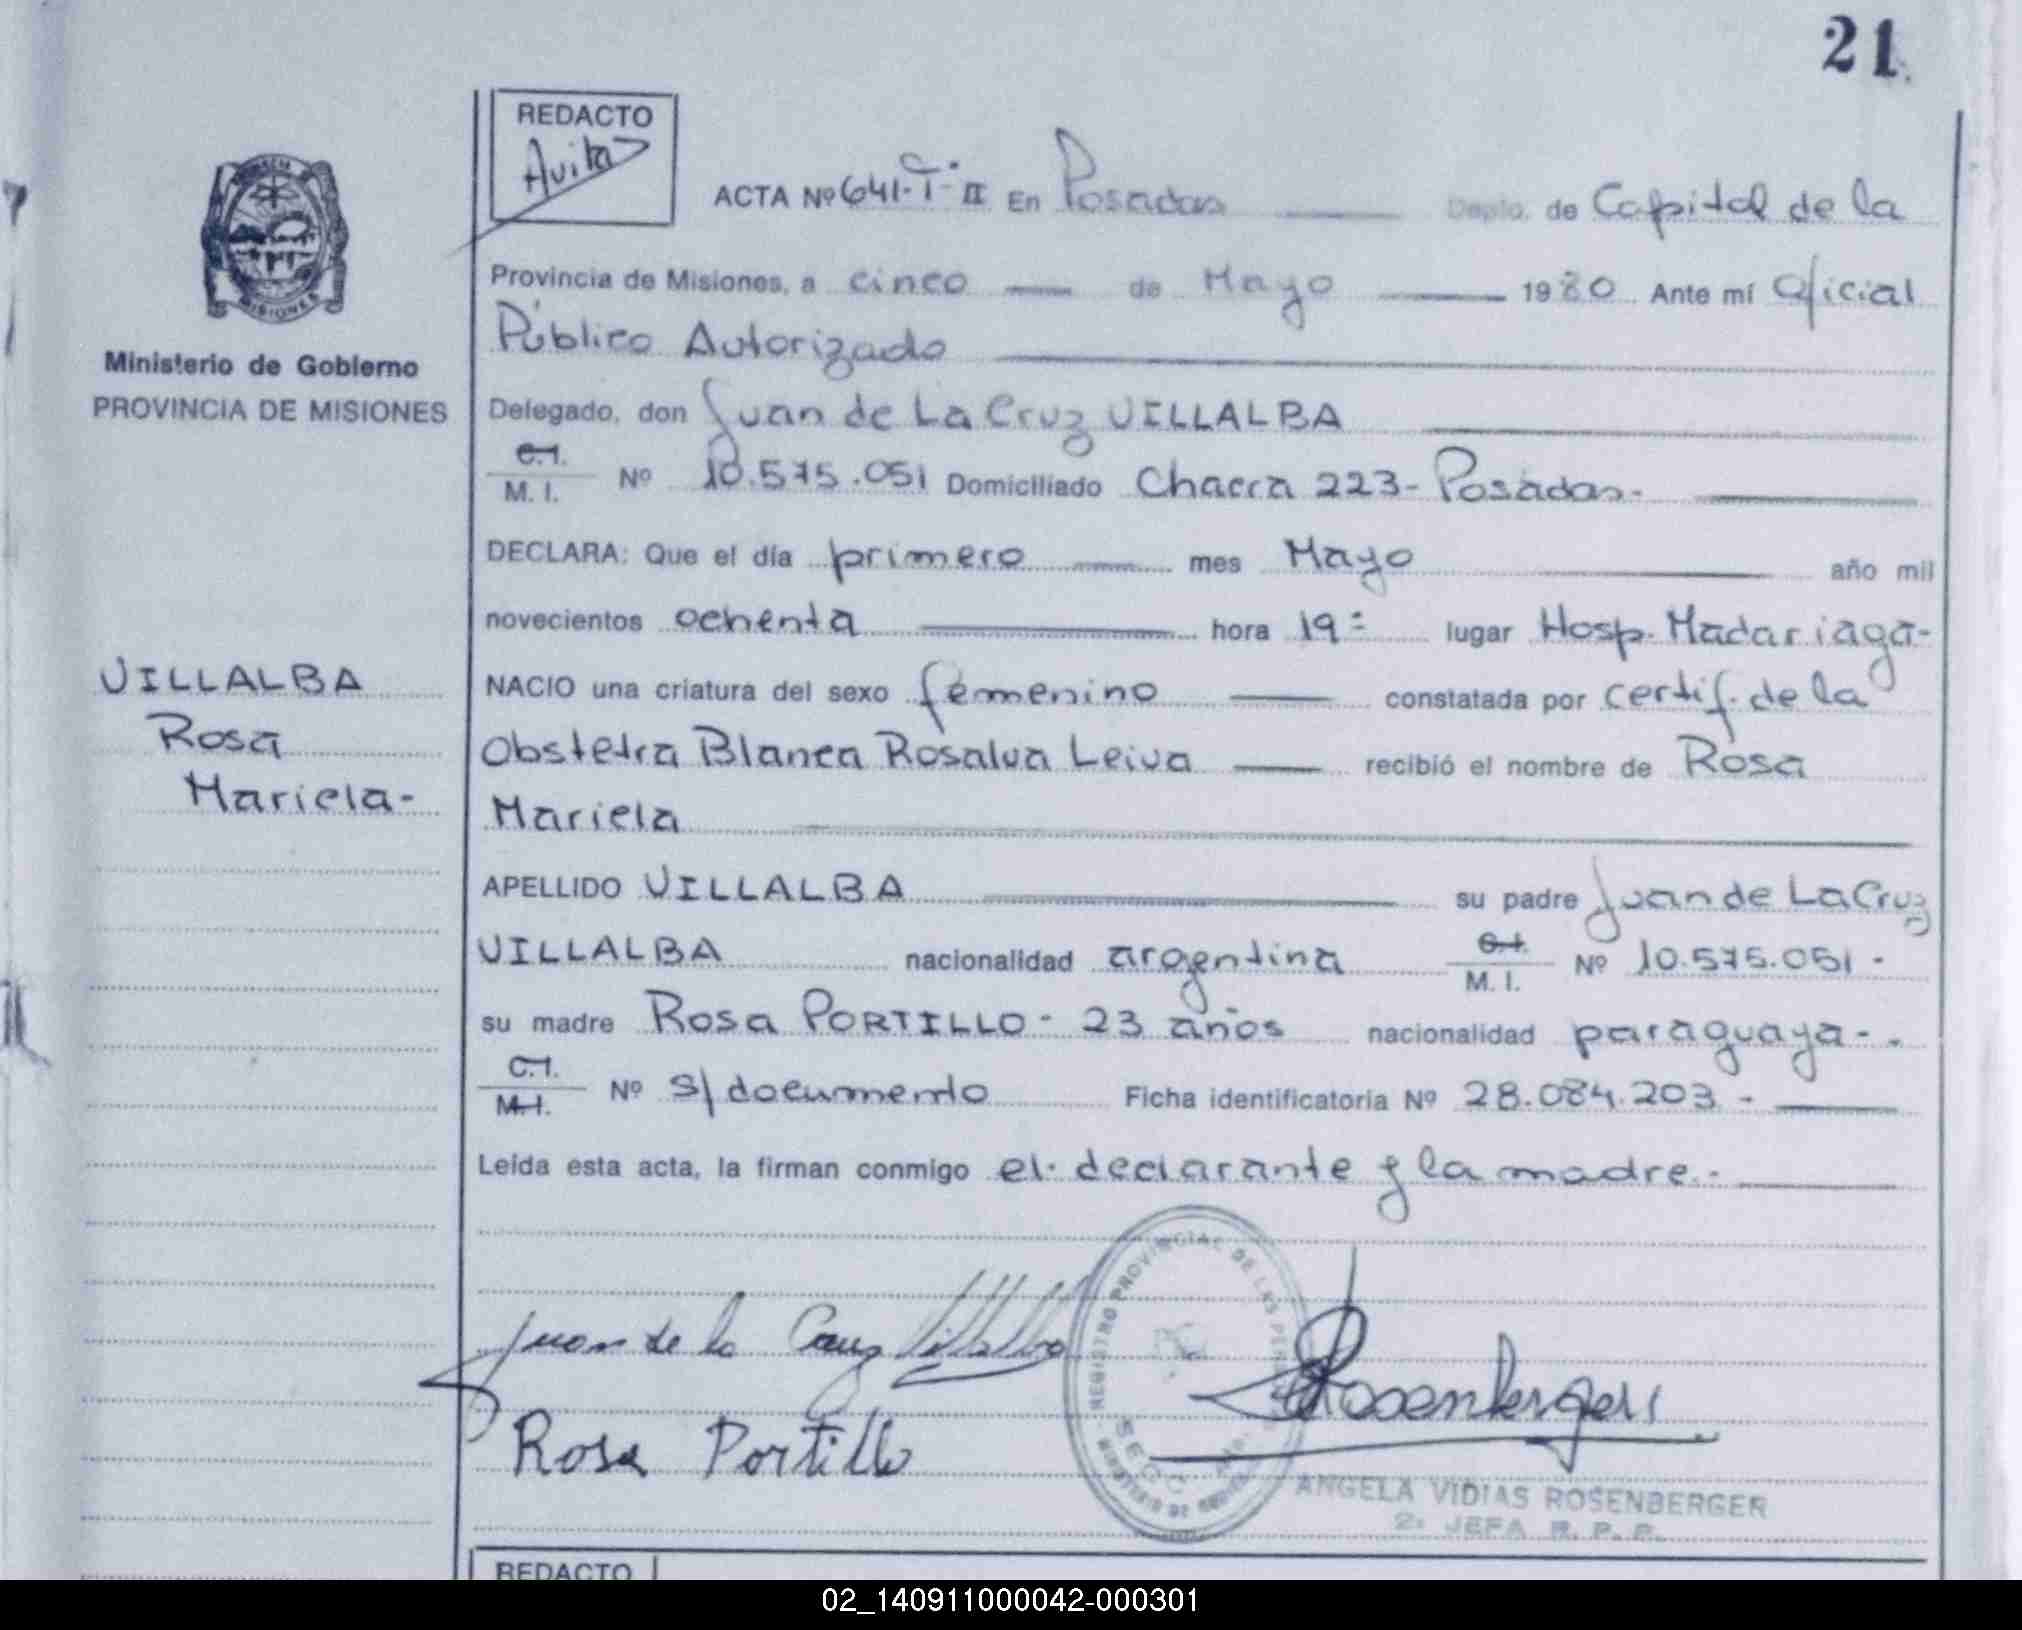 21
REDACTO
Avita
ACTA Nº 641-T-II En Posadas Depto. de Capital de la
Provincia de Misiones, a cinco de Mayo 1980 Ante mí Oficial
Público Autorizado
Delegado, don Juan de La Cruz VILLALBA
C.I.
M. I. Nº 10.575.051 Domiciliado Chacra 223- Posadas.-
DECLARA: Que el día primero mes Mayo año mil
novecientos ochenta hora 19= lugar Hosp. Madariaga-
NACIO una criatura del sexo femenino constatada por certif. de la
Obstetra Blanca Rosalva Leiva recibió el nombre de Rosa
Mariela
APELLIDO VILLALBA su padre Juan de La Cruz
VILLALBA nacionalidad argentina C.I. M. I. Nº 10.575.051-
su madre Rosa PORTILLO- 23 años nacionalidad paraguaya-.
C.I.
M.I. Nº s/documento Ficha identificatoria Nº 28.084.203-
Leída esta acta, la firman conmigo el declarante y la madre.-
Ministerio de Gobierno
PROVINCIA DE MISIONES
VILLALBA
Rosa
Mariela-
Juan de la Cruz Villalba
Rosa Portillo
REGISTRO PROVINCIAL DE LAS
Rosenberger
ANGELA VIDIAS ROSENBERGER
2ª JEFA R. P. P.
REDACTO
02_140911000042-000301